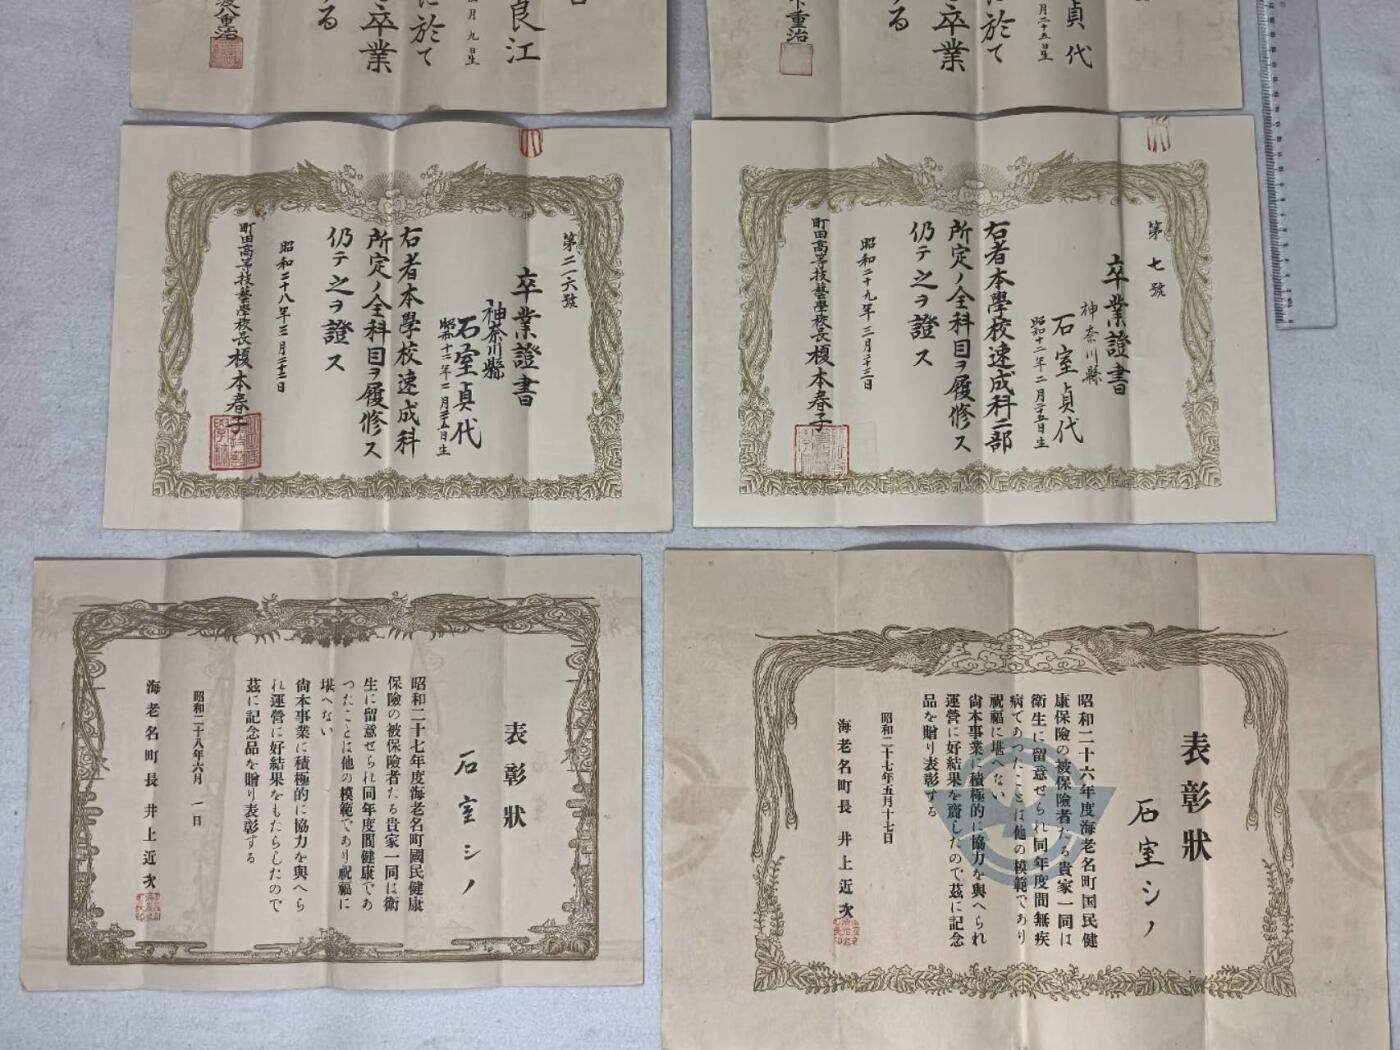 良江
月九日生
に於て
卒業
る
重治
貞代
月二十五日生
に於て
卒業
る
重治
第二一六號
卒業證書
神奈川縣
石室貞代
昭和十二年二月二十五日生
右者本學校速成科
所定ノ全科目ヲ履修ス
仍テ之ヲ證ス
昭和二十八年三月二十二日
町田高等技藝學校長榎本春子
第七號
卒業證書
神奈川縣
石室貞代
昭和十二年二月二十五日生
右者本學校速成科二部
所定ノ全科目ヲ履修ス
仍テ之ヲ證ス
昭和二十九年三月二十三日
町田高等技藝學校長榎本春子
表彰狀
石室シノ
昭和二十七年度海老名町國民健康
保險の被保險者たる貴家一同は衛
生に留意せられ同年度間健康であ
つたことは他の模範であり祝福に
堪へない
尙本事業に積極的に協力を與へら
れ運營に好結果をもたらしたので
茲に記念品を贈り表彰する
昭和二十八年六月一日
海老名町長 井上近次
表彰狀
石室シノ
昭和二十六年度海老名町国民健
康保險の被保險者たる貴家一同は
衛生に留意せられ同年度間無疾
病であつたことは他の模範であり
祝福に堪へない
尙本事業に積極的に協力を與へられ
運營に好結果を齎したので茲に記念
品を贈り表彰する
昭和二十七年五月十七日
海老名町長 井上近次